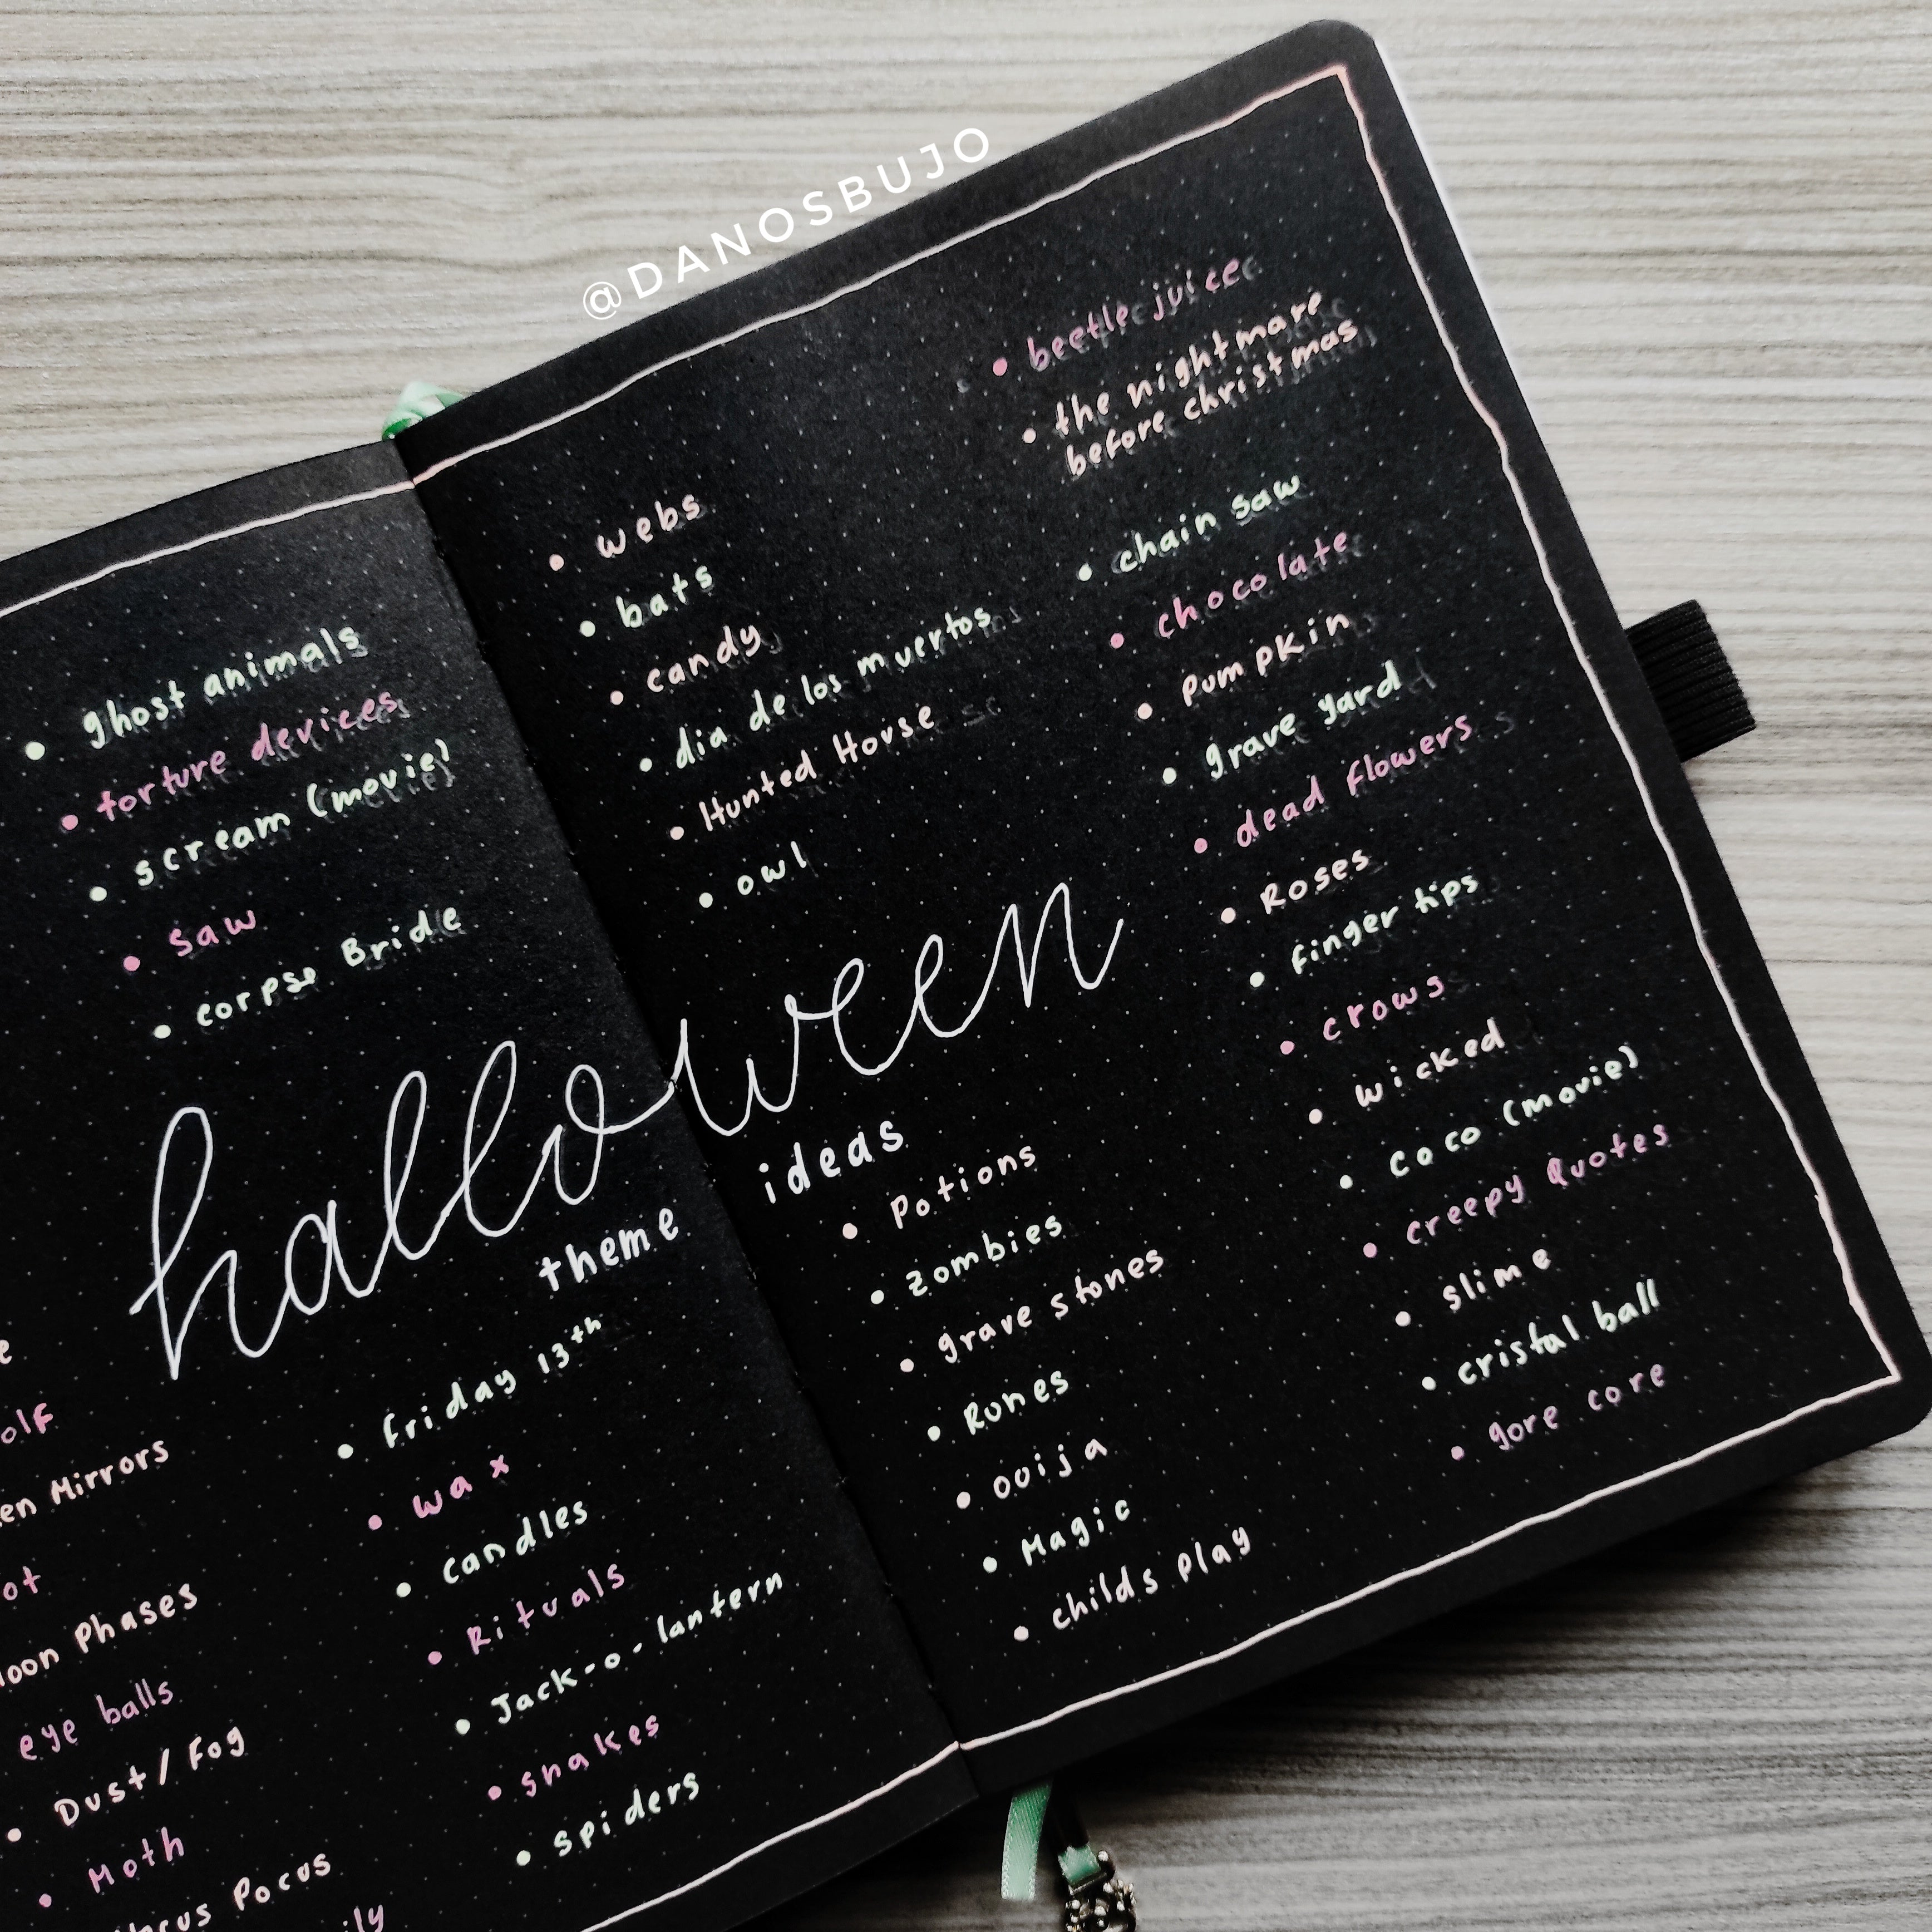 @DANOSBUJO
ghost animals
torture devices
scream (movie)
saw
corpse Bride
halloween
theme
ideas
Mirrors
Phases
eye balls
Dust/Fog
Moth
Pocus
friday 13th
wax
candles
Rituals
Jack-o-lantern
snakes
spiders
webs
bats
candy
dia de los muertos
Hunted House
owl
Potions
zombies
grave stones
Runes
ouija
Magic
childs play
beetle juice
the nightmare
before christmas
chain saw
chocolate
pumpkin
grave yard
dead flowers
Roses
finger tips
crows
wicked
coco (movie)
creepy Quotes
slime
cristal ball
gore core